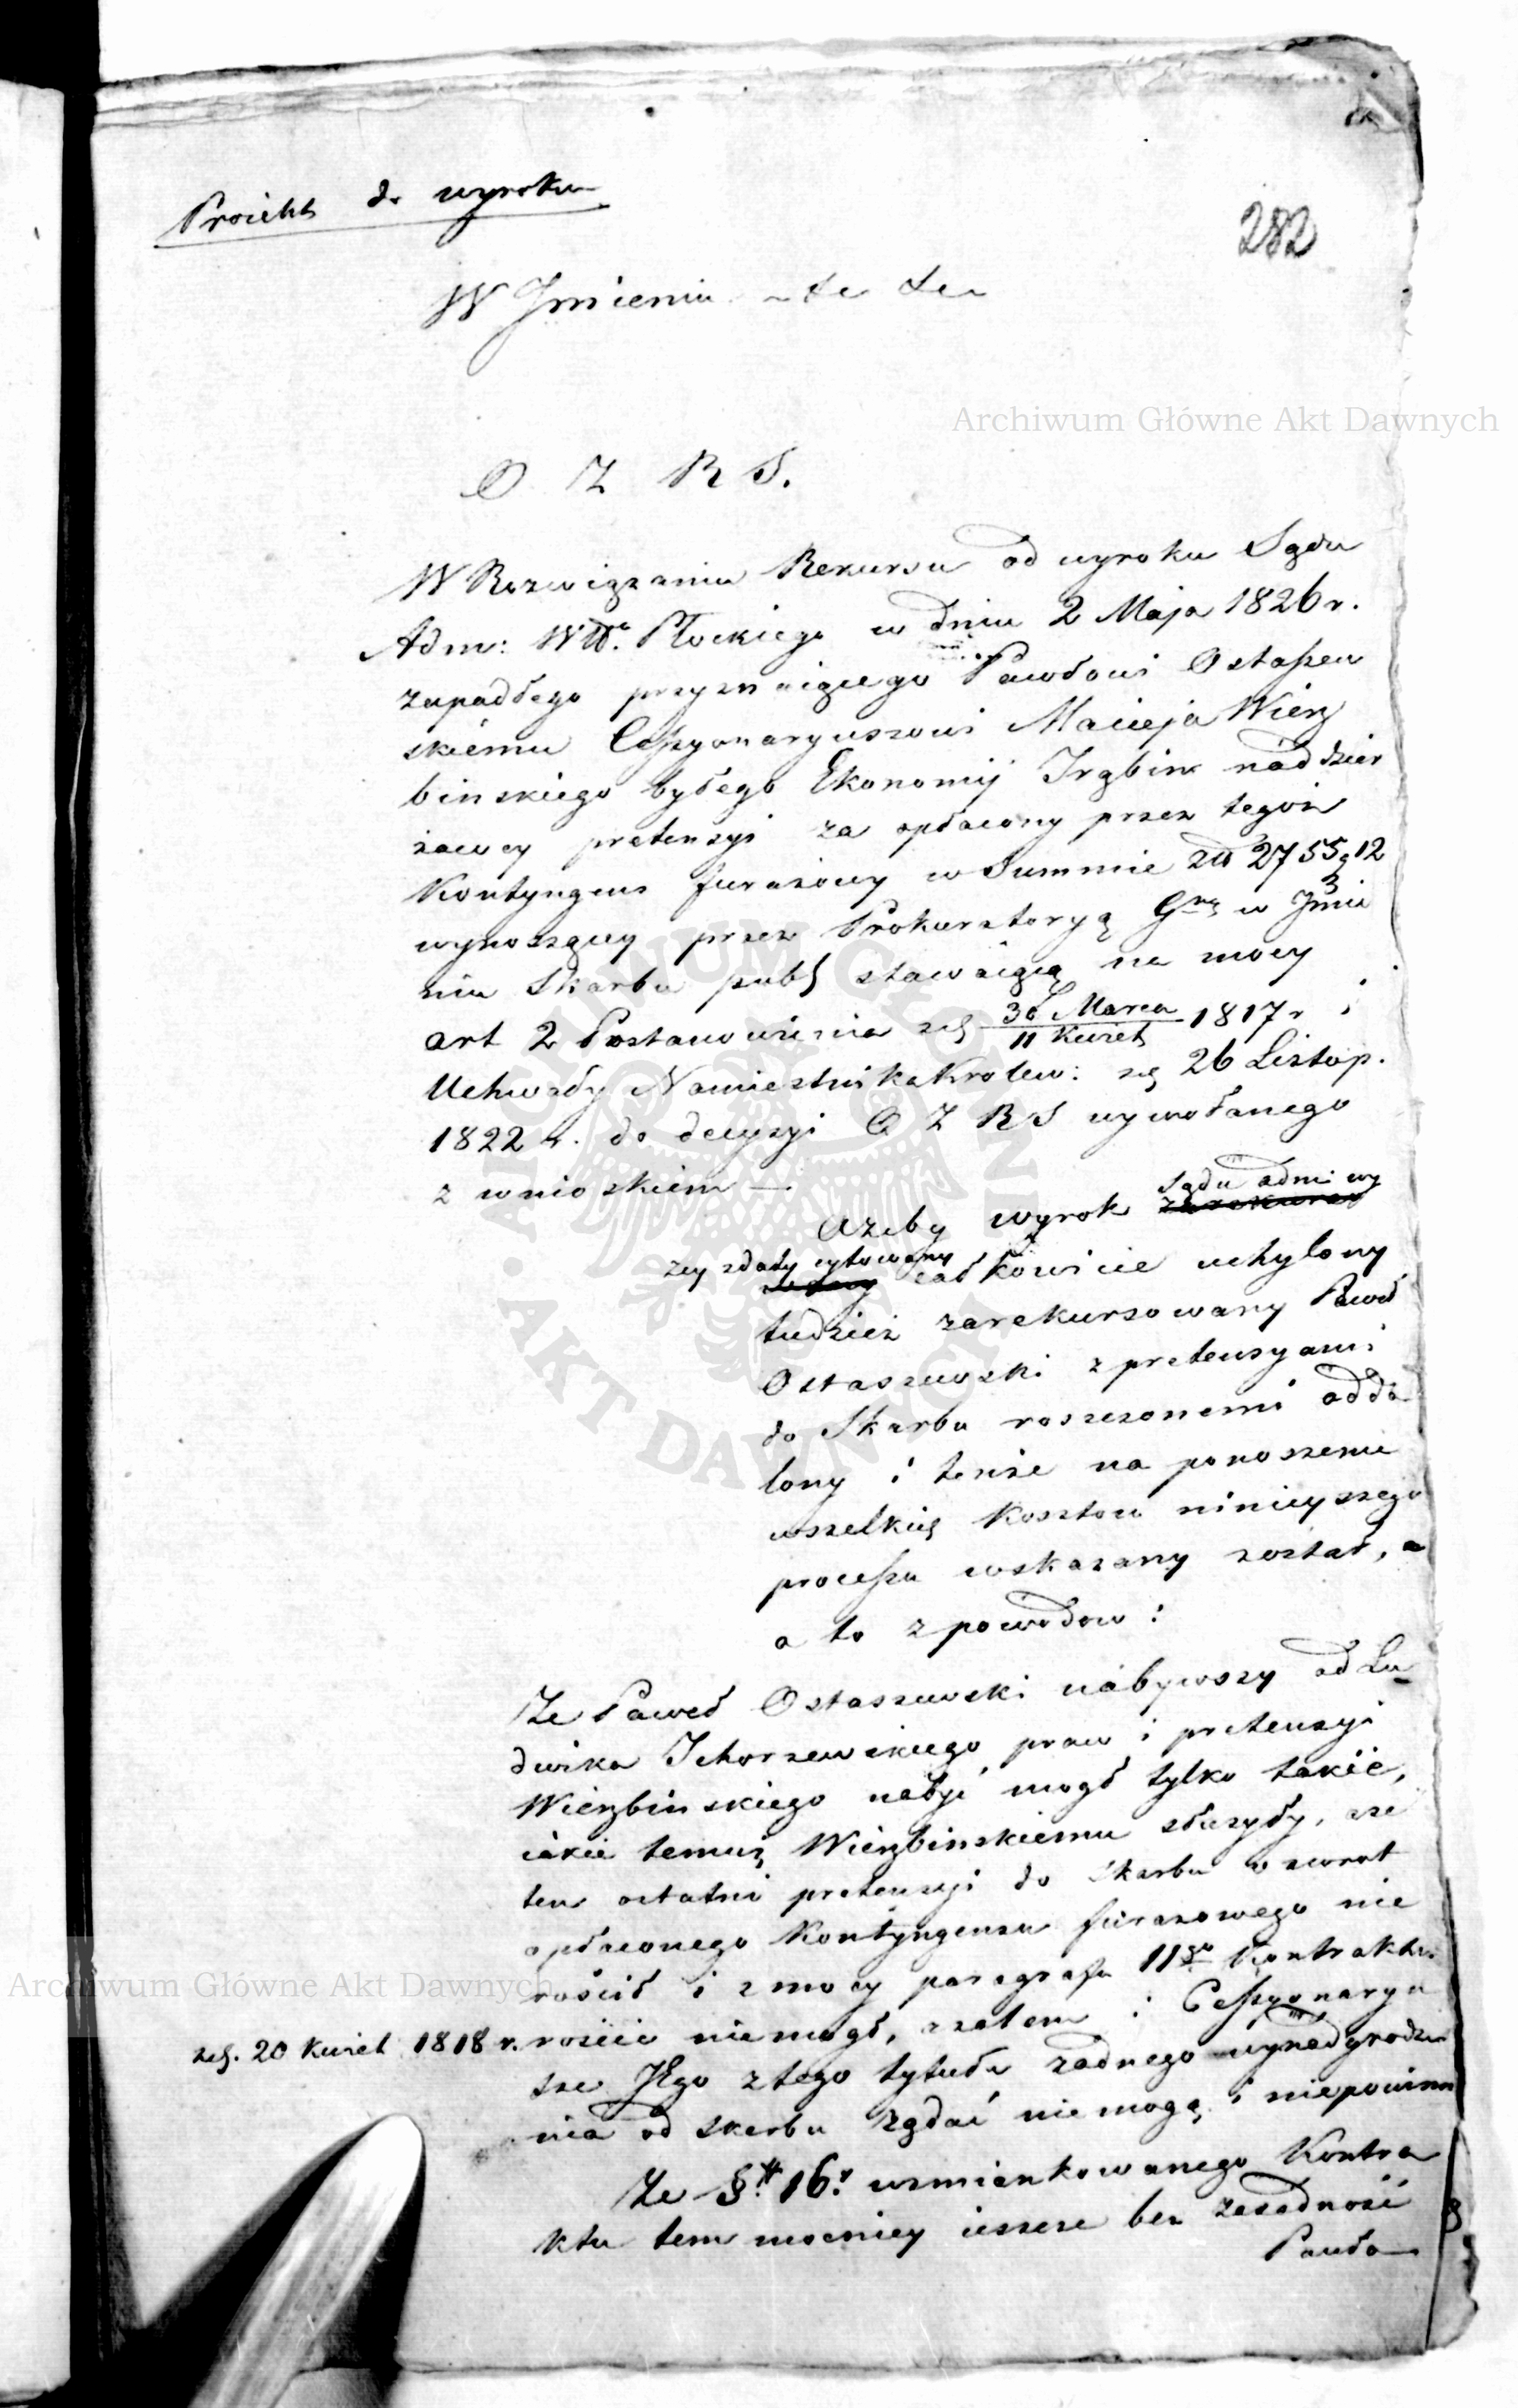 Proiekt do wyroku
282
W Jmieniu etc etc
O Z R S.
W Rozwiązaniu Rekursu od wyroku Sądu
Adm: Wdt. Płockiego w dniu 2 Maja 1826 r.
zapadłego przyznaiącego Pawłowi Ostaszew
skiemu Cessyonaryuszowi Macieja Wierz
binskiego byłego Ekonomij Trąbin naddzier
żawcy pretensyi za opłacony przez tegoż
Kontyngens furażowy w Summie złł 2755 g 12
wynoszącey przez Prokuratoryą Gną w Jmie
niu Skarbu publ stawaiącą na mocy
art 2 Postanowienia z d 30 Marca / 11 Kwiet 1817 r i
Uchwały Namiestnika Krolew: z d 26 Listop.
1822 r. do decyzyi O Z R S wywołanego
z wnioskiem —
Sądu admi wy
ażeby wyrok
zey z daty cytowany
całkowicie uchylony
tudzież zarekursowany Paweł
Ostaszewski z pretensyami
do Skarbu roszczonemi odda
lony i tenże na ponoszenie
wszelkich kosztow ninieyszego
processu wskazany został, a
a to z powodow:
Ze Paweł Ostaszewski nabywszy od Lu
dwika Ichorzewskiego praw i pretensyi
Wierzbinskiego nabyć mogł tylko takie,
iakie temuż Wierzbinskiemu służyły, że
ten ostatni pretensyi do Skarbu o zwrot
opłaconego Kontyngensu furażowego nie
rościł i z mocy paragrafu 11go Kontraktu
zd. 20 Kwiet 1818 r. rościć niemogł, a zatem i Cessyonaryu
sze Jego z tego tytułu żadnego wynadgrodze
nia od skarbu żądać niemogą i niepowinni
Ze § 16. wzmiankowanego Kontra
ktu tem mocniey ieszcze bez zasadność
Pawła
Archiwum Główne Akt Dawnych
Archiwum Główne Akt Dawnych
ARCHIWUM GŁÓWNE · AKT DAWNYCH